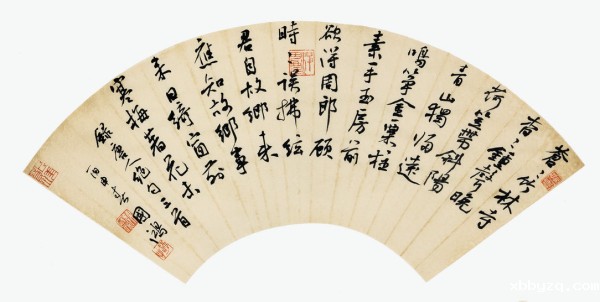 蒼〻竹林寺
杳〻鐘聲晚
荷笠帶斜陽
青山獨歸遠
鳴箏金粟柱
素手玉房前
欲得周郎顧
時〻誤拂絃
君自故鄉來
應知故鄉事
來日綺窗前
寒梅著花未
錄唐人絕句三首
丙申
xbbyzq.com